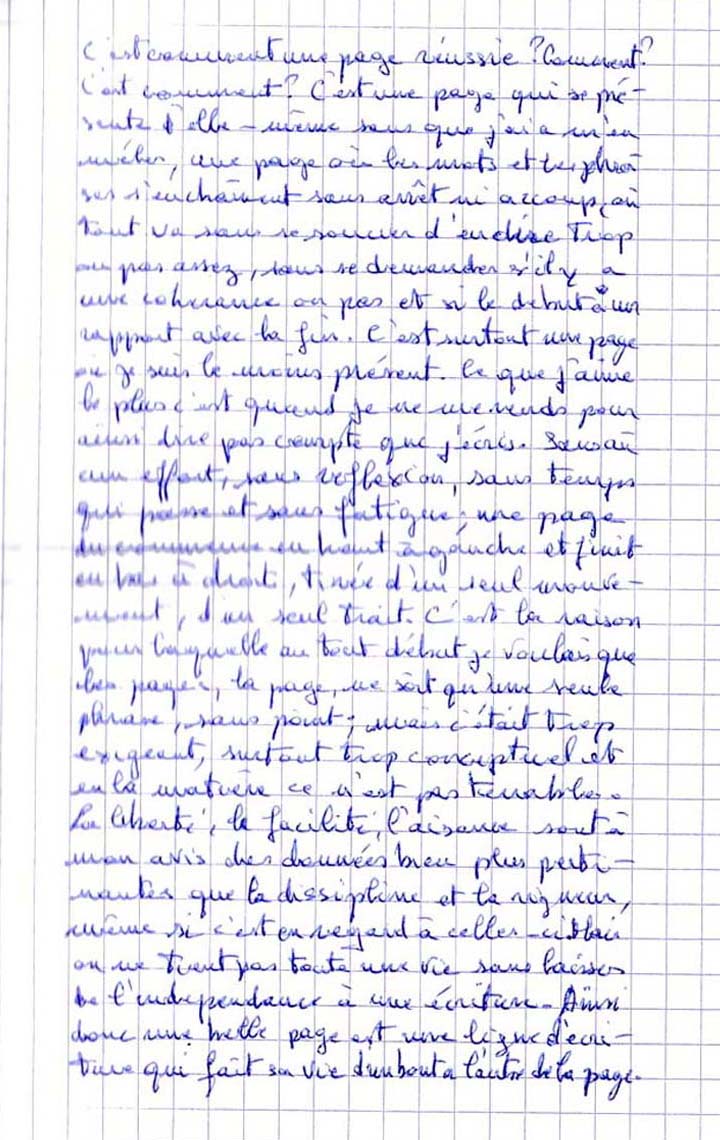 c'est comment une page réussie? Comment?
C'est comment? C'est une page qui se pré-
sente d'elle-même sans que j'ai a m'en
mêler, une page où les mots et les phra
ses s'enchaînent sans arrêt ni accoup, où
tout va sans se soucier d'en dire trop
ou pas assez, sans se demander s'il y a
une cohérance ou pas et si le début à un
rapport avec la fin. C'est surtout une page
où je suis le moins présent. Ce que j'aime
le plus c'est quand je ne me rends pour
ainsi dire pas compte que j'écris. Sans au
cun effort, sans réflexion, sans temps
qui passe et sans fatigue; une page
qui commence en haut à gauche et finit
en bas à droite, tirée d'un seul mouve-
ment, d'un seul trait. C'est la raison
pour laquelle au tout début je voulais que
les pages, la page, ne soit qu'une seule
phrase, sans point; mais c'était trop
exigeant, surtout trop conceptuel et
en la matière ce n'est pas tenable.
La liberté, la facilité, l'aisance sont à
mon avis des données bien plus perti-
nantes que la dissipline et la rigueur,
même si c'est en regard à celles-ci
on ne tient pas toute une vie sans laisser
de l'indépendance à une écriture. Ainsi
donc une belle page est une ligne d'écri-
ture qui fait sa vie d'un bout a l'autre de la page.